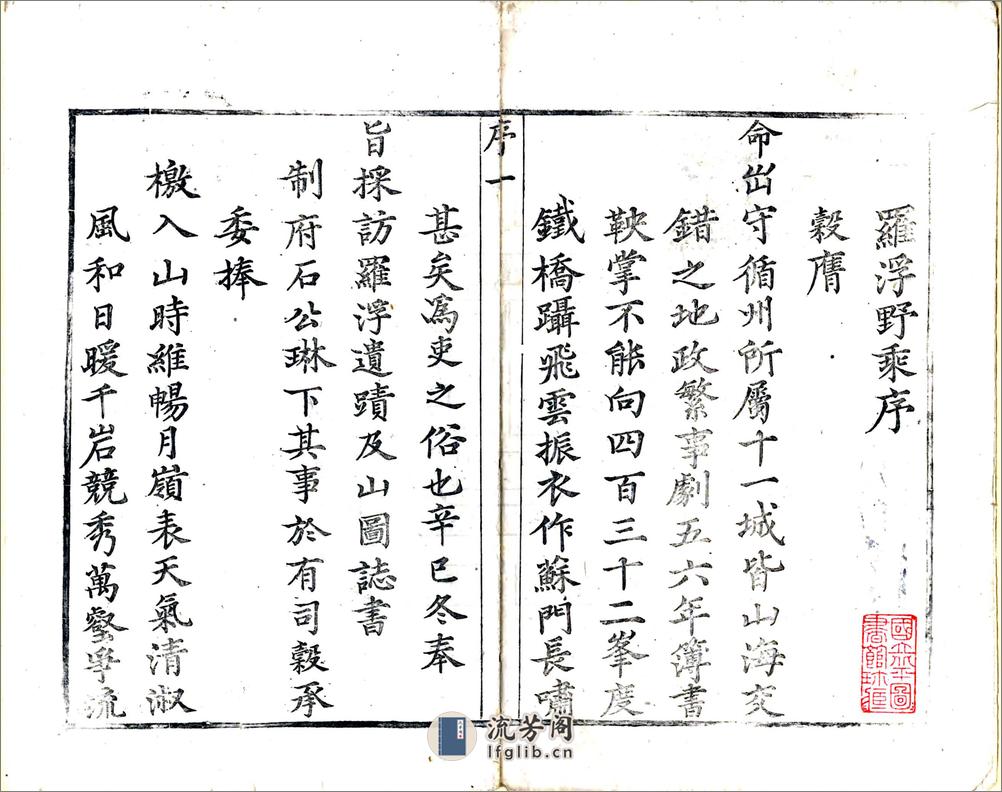 羅浮野乘序
穀膺
命出守循州所屬十一城皆山海交
錯之地政繁事劇五六年簿書
鞅掌不能向四百三十二峯度
鐵橋躡飛雲振衣作蘇門長嘯
序一
甚矣爲吏之俗也辛巳冬奉
旨採訪羅浮遺蹟及山圖誌書
制府石公琳下其事於有司穀承
委捧
檄入山時維暢月嶺表天氣清淑
風和日暖千岩競秀萬壑爭流
國立北平圖
書館珍藏
流芳阁
lfglib.cn